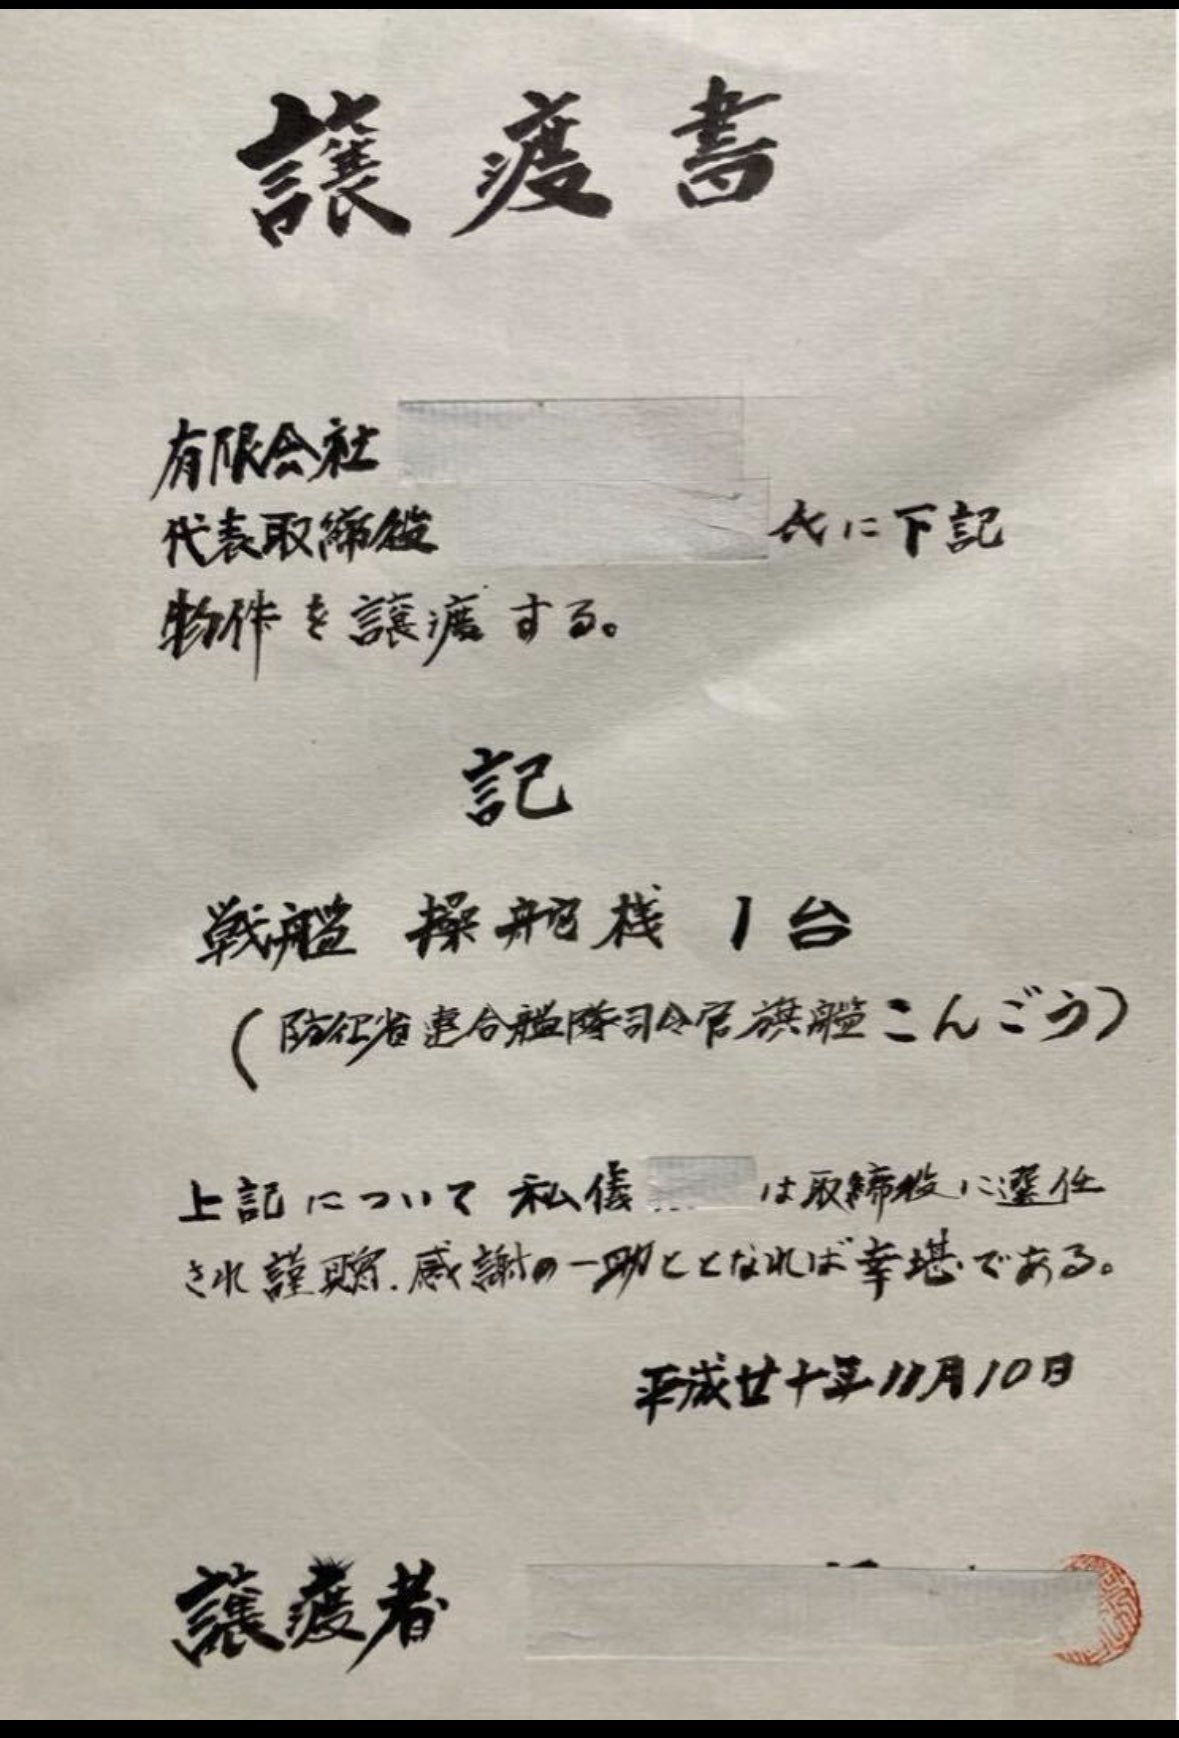 譲渡書
有限会社
代表取締役 氏に下記
物件を譲渡する。
記
戦艦 操舵桟 1台
(防衛省連合艦隊司令官旗艦こんごう)
上記について私儀 は取締役に選任
され謹贈.感謝の一助ととなれば幸甚である。
平成廿十年11月10日
譲渡者